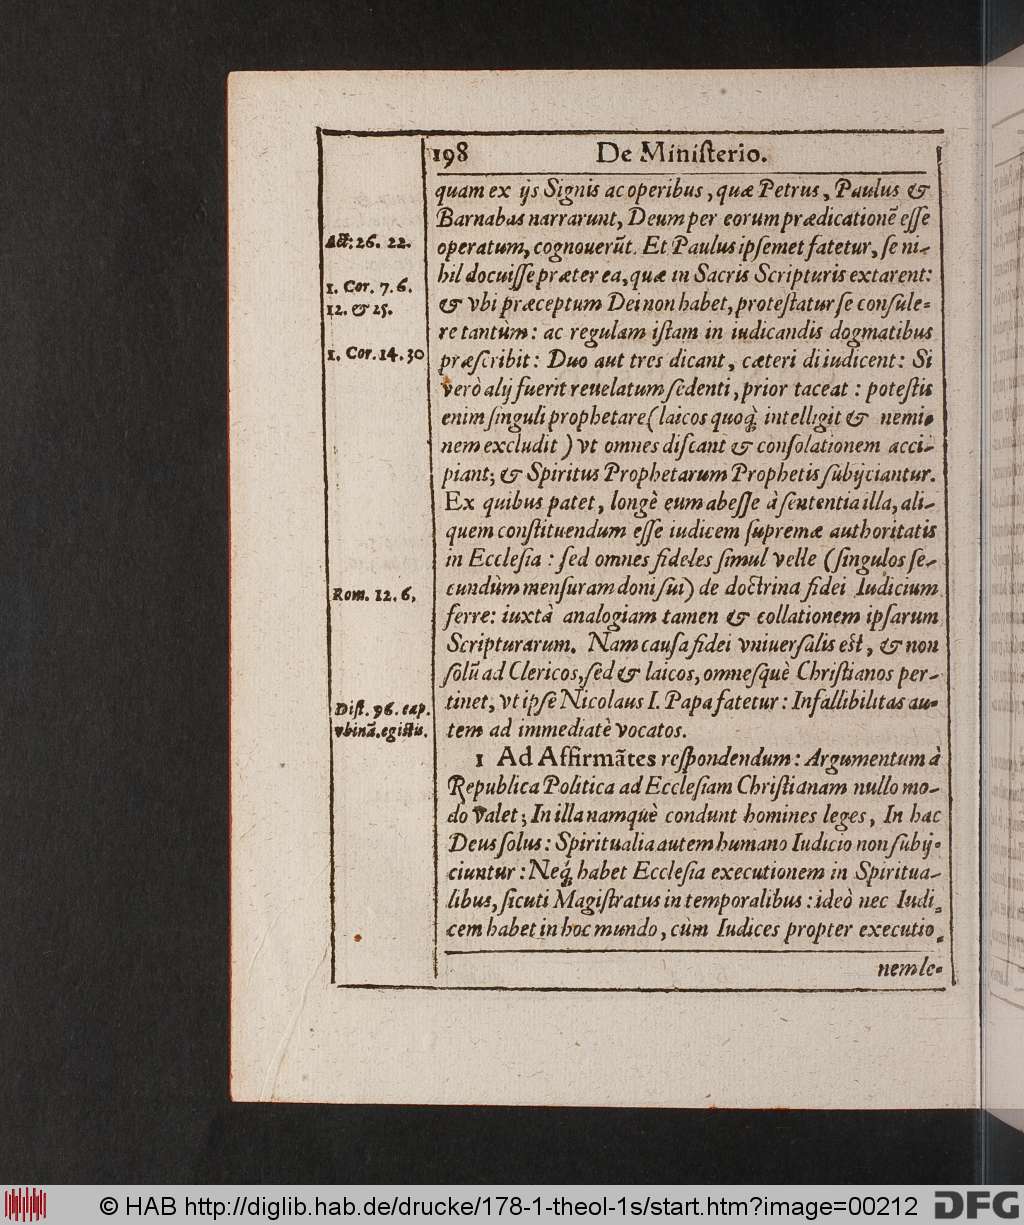 198 De Miniſterio.
quam ex ijs Signis ac operibus, quæ Petrus, Paulus &
Barnabas narrarunt, Deum per eorum prædicationē eſſe
Act: 26. 22.
operatum, cognouerūt. Et Paulus ipſemet fatetur, ſe ni-
hil docuiſſe præter ea, quæ in Sacris Scripturis extarent:
1. Cor. 7. 6.
12. & 25.
& vbi præceptum Dei non habet, proteſtatur ſe conſule=
re tantùm: ac regulam iſtam in iudicandis dogmatibus
1. Cor. 14. 30
præſcribit: Duo aut tres dicant, cæteri diiudicent: Si
verò alij fuerit reuelatum ſedenti, prior taceat: poteſtis
enim ſinguli prophetare (laicos quoq; intelligit & nemi-
nem excludit) vt omnes diſcant & conſolationem acci-
piant; & Spiritus Prophetarum Prophetis ſubijciantur.
Ex quibus patet, longè eum abeſſe à ſententia illa, ali-
quem conſtituendum eſſe iudicem ſupremæ authoritatis
in Eccleſia: ſed omnes fideles ſimul velle (ſingulos ſe-
cundùm menſuram doni ſui) de doctrina fidei Iudicium
Rom. 12. 6,
ferre: iuxtà analogiam tamen & collationem ipſarum
Scripturarum. Nam cauſa fidei vniuerſalis eſt, & non
ſolū ad Clericos, ſed & laicos, omneſquè Chriſtianos per-
tinet, vt ipſe Nicolaus I. Papa fatetur: Infallibilitas au-
Diſt. 96. cap.
vbinā. egiſtis.
tem ad immediatè vocatos.
1 Ad Affirmātes reſpondendum: Argumentum à
Republica Politica ad Eccleſiam Chriſtianam nullo mo-
do valet; In illa namquè condunt homines leges, In hac
Deus ſolus: Spiritualia autem humano Iudicio non ſubij-
ciuntur: Neq; habet Eccleſia executionem in Spiritua-
libus, ſicuti Magiſtratus in temporalibus: ideò nec Iudi-
cem habet in hoc mundo, cùm Iudices propter executio-
nem le-
© HAB http://diglib.hab.de/drucke/178-1-theol-1s/start.htm?image=00212 DFG